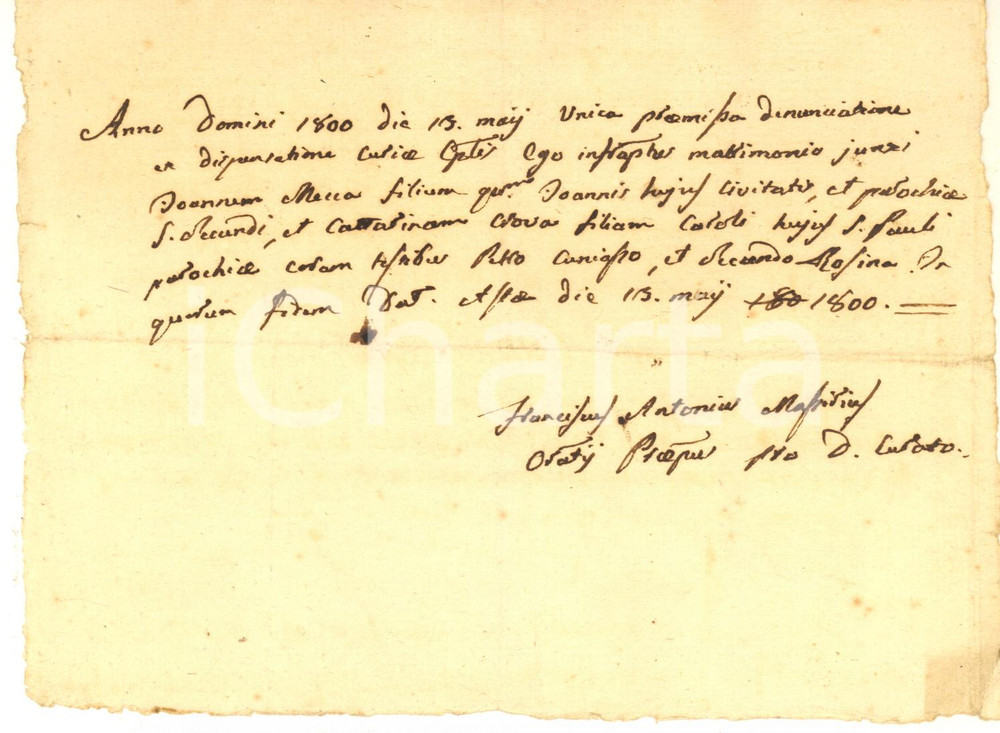 Anno Domini 1800 die 13. maij Unica præmissa denunciatione
ex dispensatione Curiæ Eplis Ego infraptus matrimonio junxi
Joannem Mecca filium qu.m Joannis hujus Civitatis, et parochiæ
S. Secundi, et Cattarinam Crova filiam Caroli hujus S. Pauli
parochiæ coram testibus Petro Canigsso, et Secundo Rosina. In
quorum fidem Dat. Astæ die 13. maij 180 1800.
iCharta
Franciscus Antonius
Oratij Præptus pro D. Curato.